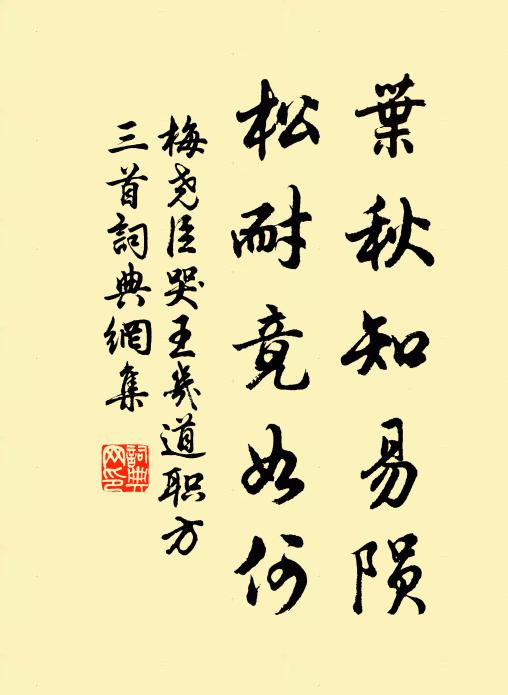 葉秋知易隕
松耐竟如何
梅尧臣哭王幾道职方
三首詞典網集
詞典网印